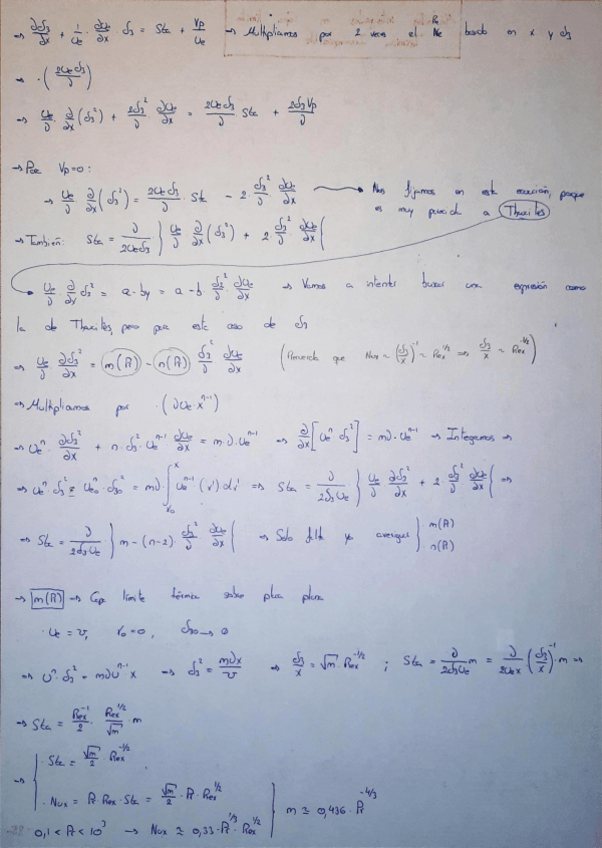 → ∂δ₃/∂x + 1/Ue · ∂Ue/∂x · δ₃ = Sta + Vp/Ue → Multiplicamos por 2 veces el Re basado en x y δ₃
→ · (2Ueδ₃/ν)
→ Ue/ν · ∂/∂x (δ₃²) + 2δ₃²/ν · ∂Ue/∂x = 2Ueδ₃/ν Sta + 2δ₃Vp/ν
→ Vp=0:
→ Ue/ν ∂/∂x (δ₃²) = 2Ueδ₃/ν · Sta - 2 · δ₃²/ν ∂Ue/∂x → Nos fijamos en esta ecuación, porque
es muy parecida a Thwaites
→ También: Sta = ν/2Ueδ₃ } Ue/ν ∂/∂x (δ₃²) + 2 δ₃²/ν · ∂Ue/∂x {
Ue/ν ∂/∂x δ₃² = a - by = a - b δ₃²/ν · ∂Ue/∂x → Vamos a intentar buscar una expresión como
la de Thwaites, pero para este caso de δ₃
→ Ue/ν ∂δ₃²/∂x = m(Pr) - n(Pr) δ₃²/ν ∂Ue/∂x (Recuerda que Nux ~ (δ₃/x)⁻¹ ~ Rex^1/2 ⇒ δ₃/x ~ Rex^-1/2)
→ Multiplicamos por · (νUe^n-1)
→ Ue^n · ∂δ₃²/∂x + n · δ₃² · Ue^n-1 ∂Ue/∂x = m·ν·Ue^n-1 → ∂/∂x [Ue^n δ₃²] = mν · Ue^n-1 → Integramos →
→ Ue^n · δ₃² = Ue₀^n · δ₃₀² = mν · ∫ₓ₀ˣ Ue^n-1 (x') dx' → Sta = ν/2δ₃Ue } Ue/ν ∂δ₃²/∂x + 2 · δ₃²/ν ∂Ue/∂x { ⇒
→ Sta = ν/2δ₃Ue } m - (n-2) · δ₃²/ν ∂Ue/∂x { → Solo falta ya averiguar } m(Pr) n(Pr)
→ m(Pr) → Capa límite térmica sobre placa plana
· Ue = U, x₀=0, δ₃₀ → 0
→ U^n · δ₃² = mνU^n-1 x → δ₃² = mνx/U → δ₃/x = √m · Rex^-1/2 ; Sta = ν/2δ₃Ue m = ν/2Uex (δ₃/x)⁻¹ · m ⇒
→ Sta = Rex⁻¹/2 · Rex^1/2/√m · m
→ { · Sta = √m/2 Rex^-1/2
· Nux = Pr · Rex · Sta = √m/2 · Pr · Rex^1/2 } m ≃ 0,436 · Pr^-4/3
0,1 < Pr < 10³ → Nux ≃ 0,33 · Pr^1/3 · Rex^1/2